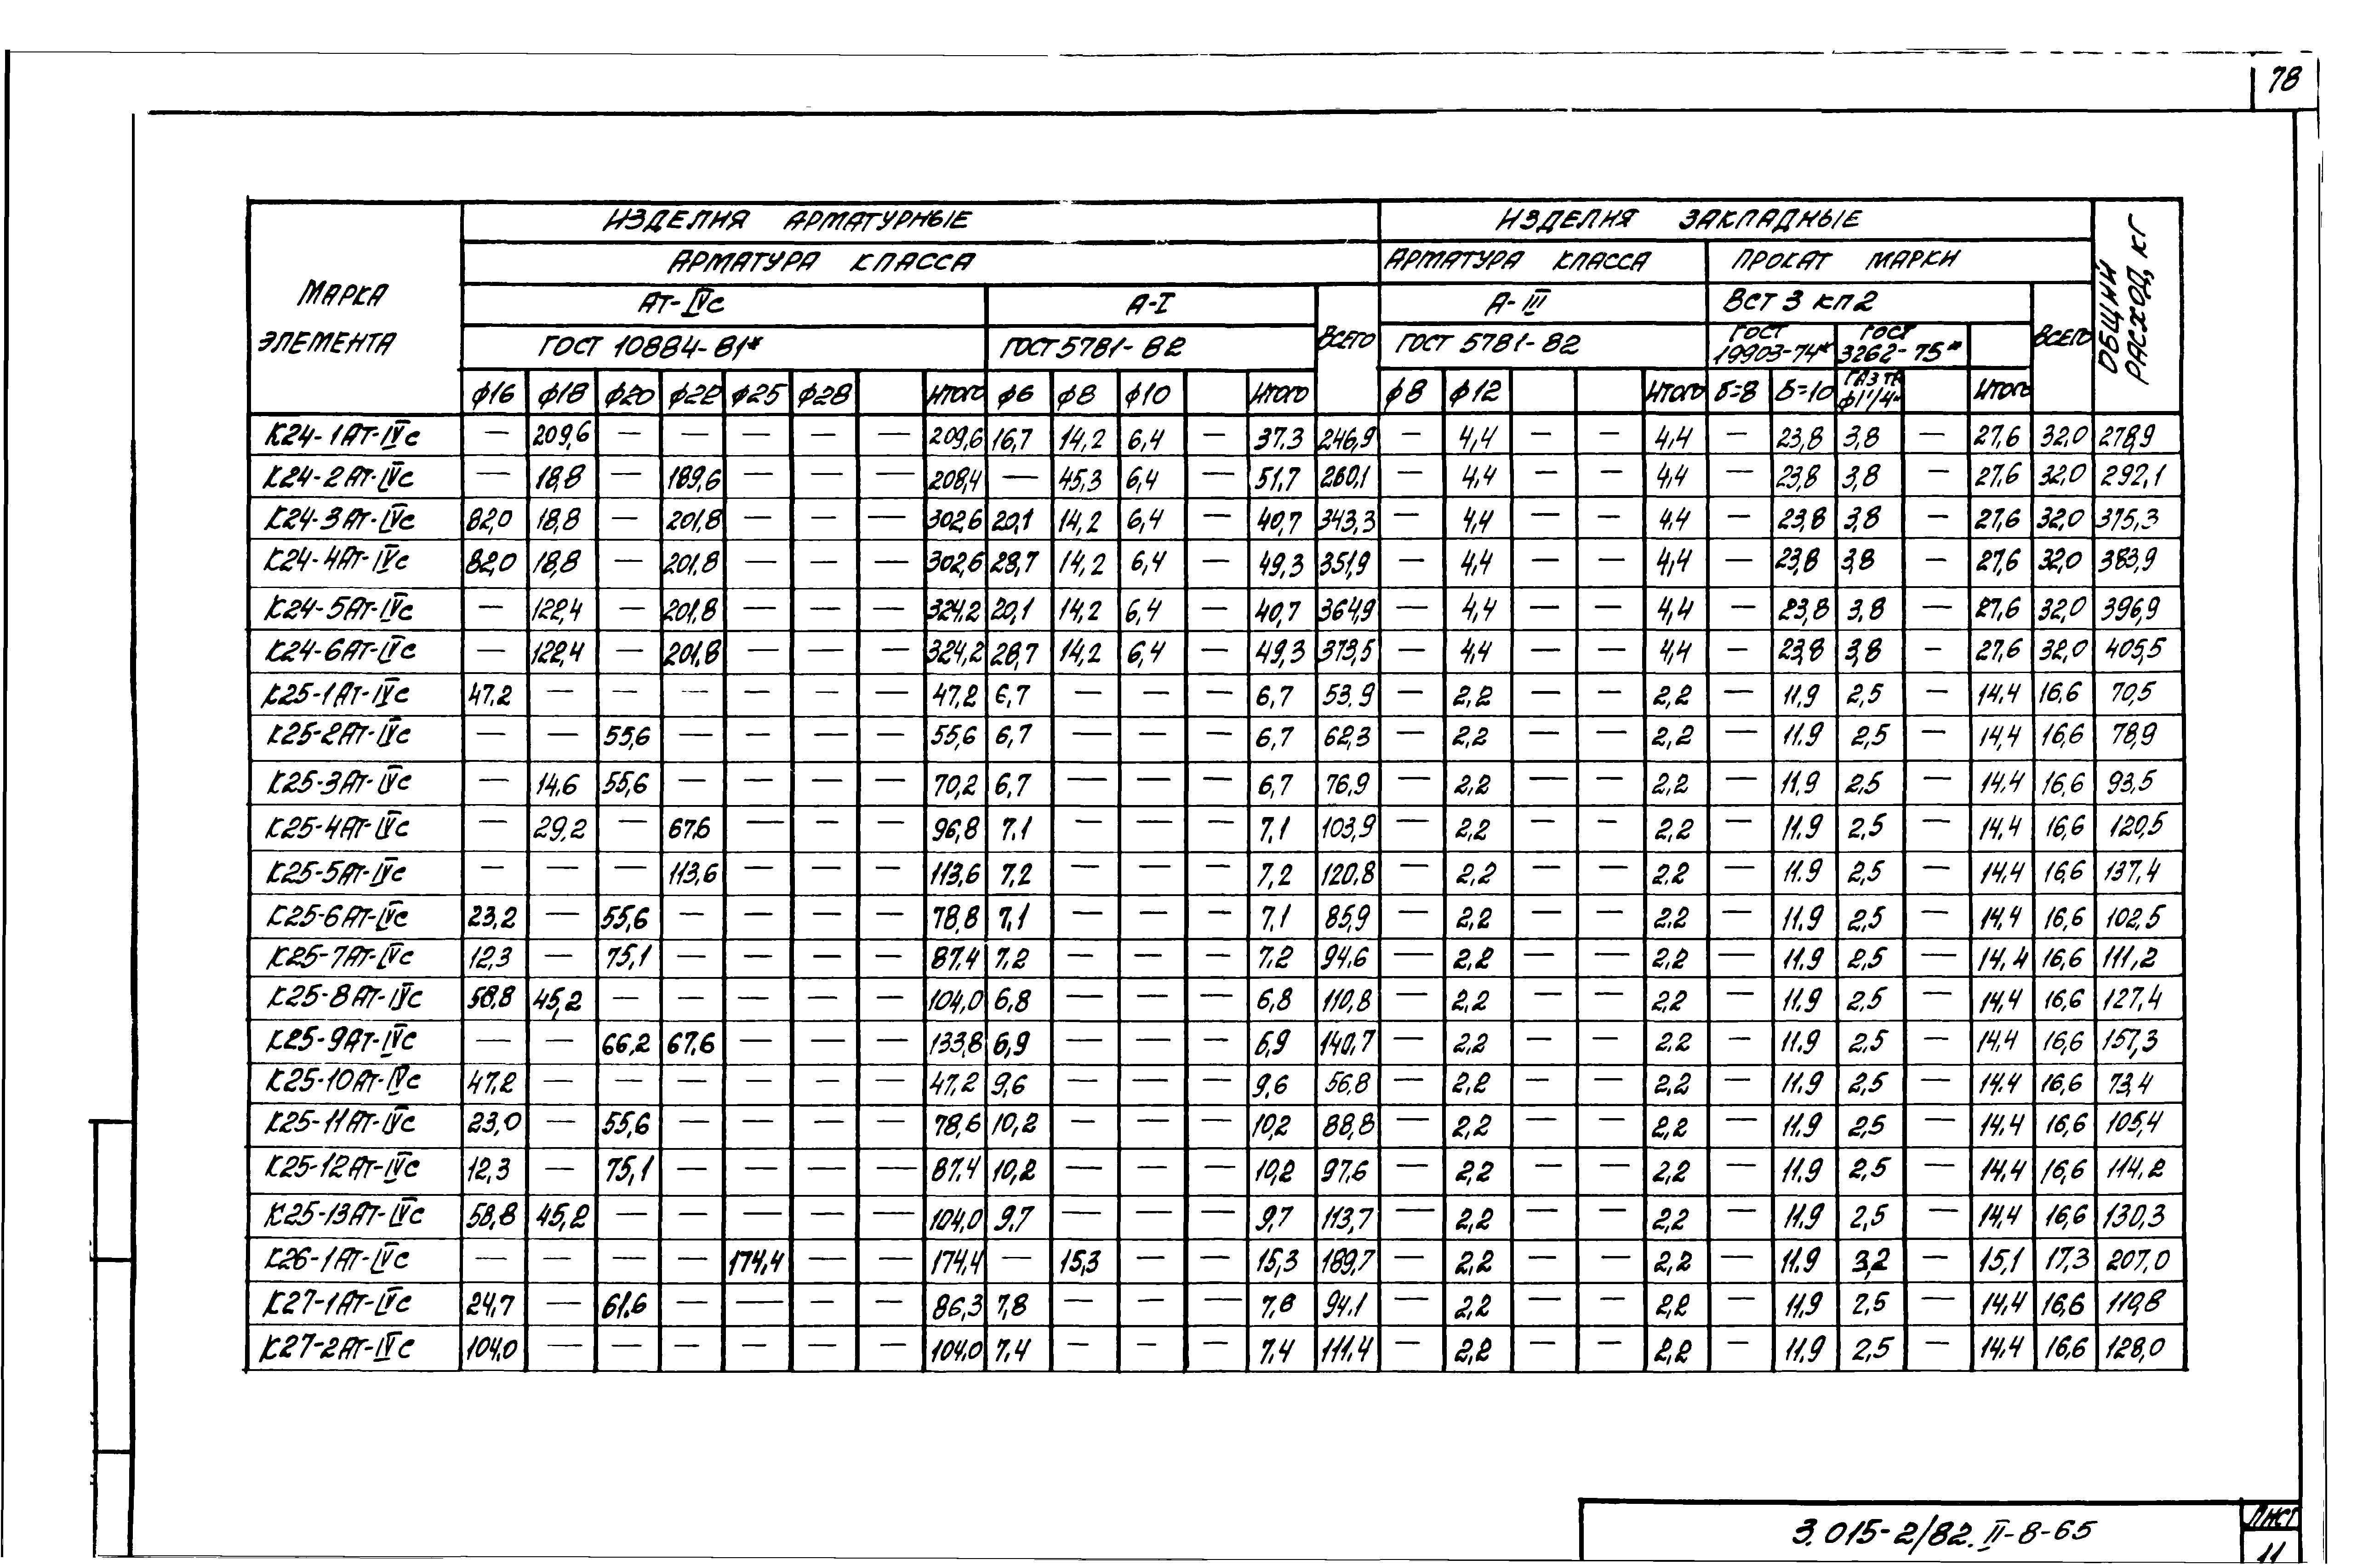 78
ИЗДЕЛИЯ АРМАТУРНЫЕ ИЗДЕЛИЯ ЗАКЛАДНЫЕ
АРМАТУРА КЛАССА АРМАТУРА КЛАССА ПРОКАТ МАРКИ
МАРКА ЭЛЕМЕНТА АТ-IVС А-I ВСЕГО А-III ВСТ 3 КП2 ВСЕГО ОБЩИЙ РАСХОД, КГ
ГОСТ 10884-81* ГОСТ 5781-82 ГОСТ 5781-82 ГОСТ 19903-74* ГОСТ 3262-75*
ф16 ф18 ф20 ф22 ф25 ф28 ИТОГО ф6 ф8 ф10 ИТОГО ф8 ф12 ИТОГО δ=8 δ=10 ГАЗ ТР ф1 1/4" ИТОГО
К24-1АТ-IVС — 209,6 — — — — — 209,6 16,7 14,2 6,4 — 37.3 246,9 — 4,4 — — 4,4 — 23,8 3,8 — 27,6 32,0 278,9
К24-2АТ-IVС — 18,8 — 189,6 — — — 208,4 — 45,3 6,4 — 51,7 260,1 — 4,4 — — 4,4 — 23,8 3,8 — 27,6 32,0 292,1
К24-3АТ-IVС 82,0 18,8 — 201,8 — — — 302,6 20,1 14,2 6,4 — 40,7 343,3 — 4,4 — — 4,4 — 23,8 3,8 — 27,6 32,0 375,3
К24-4АТ-IVС 82,0 18,8 — 201,8 — — — 302,6 28,7 14,2 6,4 — 49,3 351,9 — 4,4 — — 4,4 — 23,8 3,8 — 27,6 32,0 383,9
К24-5АТ-IVС — 122,4 — 201,8 — — — 324,2 20,1 14,2 6,4 — 40,7 364,9 — 4,4 — — 4,4 — 23,8 3,8 — 27,6 32,0 396,9
К24-6АТ-IVС — 122,4 — 201,8 — — — 324,2 28,7 14,2 6,4 — 49,3 373,5 — 4,4 — — 4,4 — 23,8 3,8 — 27,6 32,0 405,5
К25-1АТ-IVС 47,2 — — — — — — 47,2 6,7 — — — 6,7 53,9 — 2,2 — — 2,2 — 11,9 2,5 — 14,4 16,6 70,5
К25-2АТ-IVС — — 55,6 — — — — 55,6 6,7 — — — 6,7 62,3 — 2,2 — — 2,2 — 11.9 2,5 — 14,4 16,6 78,9
К25-3АТ-IVС — 14,6 55,6 — — — — 70,2 6,7 — — — 6,7 76,9 — 2,2 — — 2,2 — 11,9 2,5 — 14,4 16,6 93,5
К25-4АТ-IVС — 29,2 — 67,6 — — — 96,8 7,1 — — — 7,1 103,9 — 2,2 — — 2,2 — 11.9 2,5 — 14,4 16,6 120,5
К25-5АТ-IVС — — — 113,6 — — — 113,6 7,2 — — — 7,2 120,8 — 2,2 — — 2,2 — 11.9 2,5 — 14,4 16,6 137,4
К25-6АТ-IVС 23,2 — 55,6 — — — — 78,8 7,1 — — — 7,1 85,9 — 2,2 — — 2,2 — 11.9 2,5 — 14,4 16,6 102,5
К25-7АТ-IVС 12,3 — 75,1 — — — — 87,4 7,2 — — — 7,2 94,6 — 2,2 — — 2,2 — 11.9 2,5 — 14,4 16,6 111,2
К25-8АТ-IVС 58,8 45,2 — — — — — 104,0 6,8 — — — 6,8 110,8 — 2,2 — — 2,2 — 11.9 2,5 — 14,4 16,6 127,4
К25-9АТ-IVС — — 66,2 67,6 — — — 133,8 6,9 — — — 6,9 140,7 — 2,2 — — 2,2 — 11.9 2,5 — 14,4 16,6 157,3
К25-10АТ-IVС 47,2 — — — — — — 47,2 9,6 — — — 9,6 56,8 — 2,2 — — 2,2 — 11.9 2,5 — 14,4 16,6 73,4
К25-11АТ-IVС 23,0 — 55,6 — — — — 78,6 10,2 — — — 10,2 88,8 — 2,2 — — 2,2 — 11.9 2,5 — 14,4 16,6 105,4
К25-12АТ-IVС 12,3 — 75,1 — — — — 87,4 10,2 — — — 10,2 97,6 — 2,2 — — 2,2 — 11.9 2,5 — 14,4 16,6 114,2
К25-13АТ-IVС 58,8 45,2 — — — — — 104,0 9,7 — — — 9,7 113,7 — 2,2 — — 2,2 — 11.9 2,5 — 14,4 16,6 130,3
К26-1АТ-IVС — — — — 174,4 — — 174,4 — 15,3 — — 15,3 189,7 — 2,2 — — 2,2 — 11.9 3,2 — 15,1 17,3 207,0
К27-1АТ-IVС 24,7 — 61,6 — — — — 86,3 7,8 — — — 7,8 94,1 — 2,2 — — 2,2 — 11,9 2,5 — 14,4 16,6 110,8
К27-2АТ-IVС 104,0 — — — — — — 104,0 7,4 — — — 7,4 111,4 — 2,2 — — 2,2 — 11.9 2,5 — 14,4 16,6 128,0
3.015-2/82.II-8-65
ЛИСТ
11